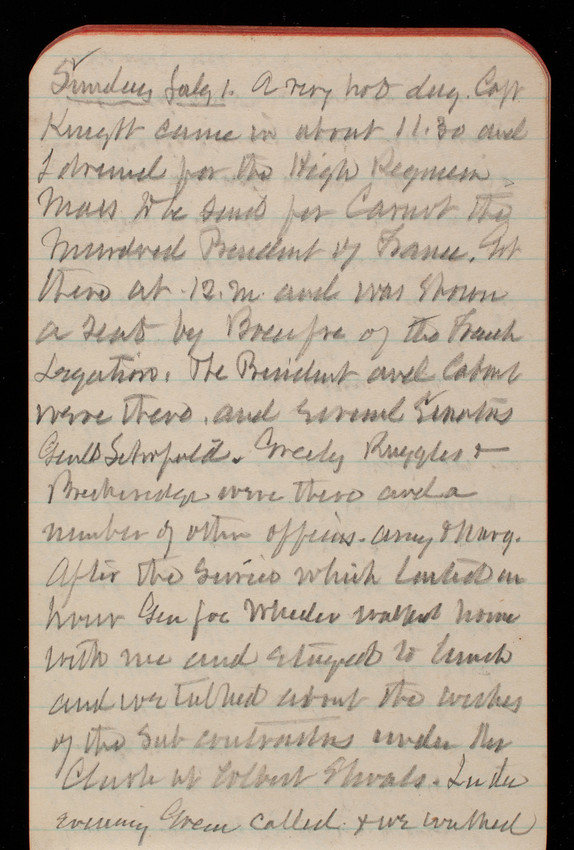 Sunday July 1. A very hot day. Capt
Knight came in about 11.30 and
I dressed for the High Requiem
Mass to be said for Carnot the
Murdered President of France. Got
there at 12. M. and was shown
a seat by of the French
Legation. The President and Cabinet
were there, and several Senators
Genl Schofield. Greely Ruggles &
Breckenridge were there and a
number of other officers. army & Navy.
After the Service which lasted an
hour Gen Joe Wheeler walked home
with me and stayed to lunch
and we talked about the wishes
of the Sub contractors under
at Colbert Shoals. In the
evening Green called & we walked